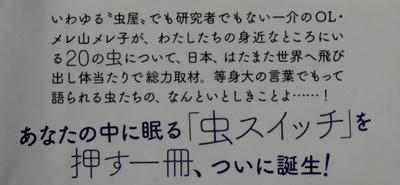 いわゆる〝虫屋〟でも研究者でもない一介のOL・
メレ山メレ子が、わたしたちの身近なところにい
る20の虫について、日本、はたまた世界へ飛び
出し体当たりで総力取材。等身大の言葉でもって
語られる虫たちの、なんといとしきことよ……！
あなたの中に眠る「虫スイッチ」を
押す一冊、ついに誕生！